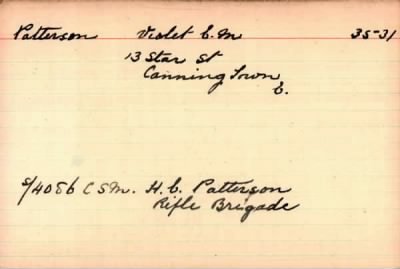 Patterson Violet E. M 35-31
13 Star St
Canning Town
E.
S/4086 C S M. H. C. Patterson
Rifle Brigade